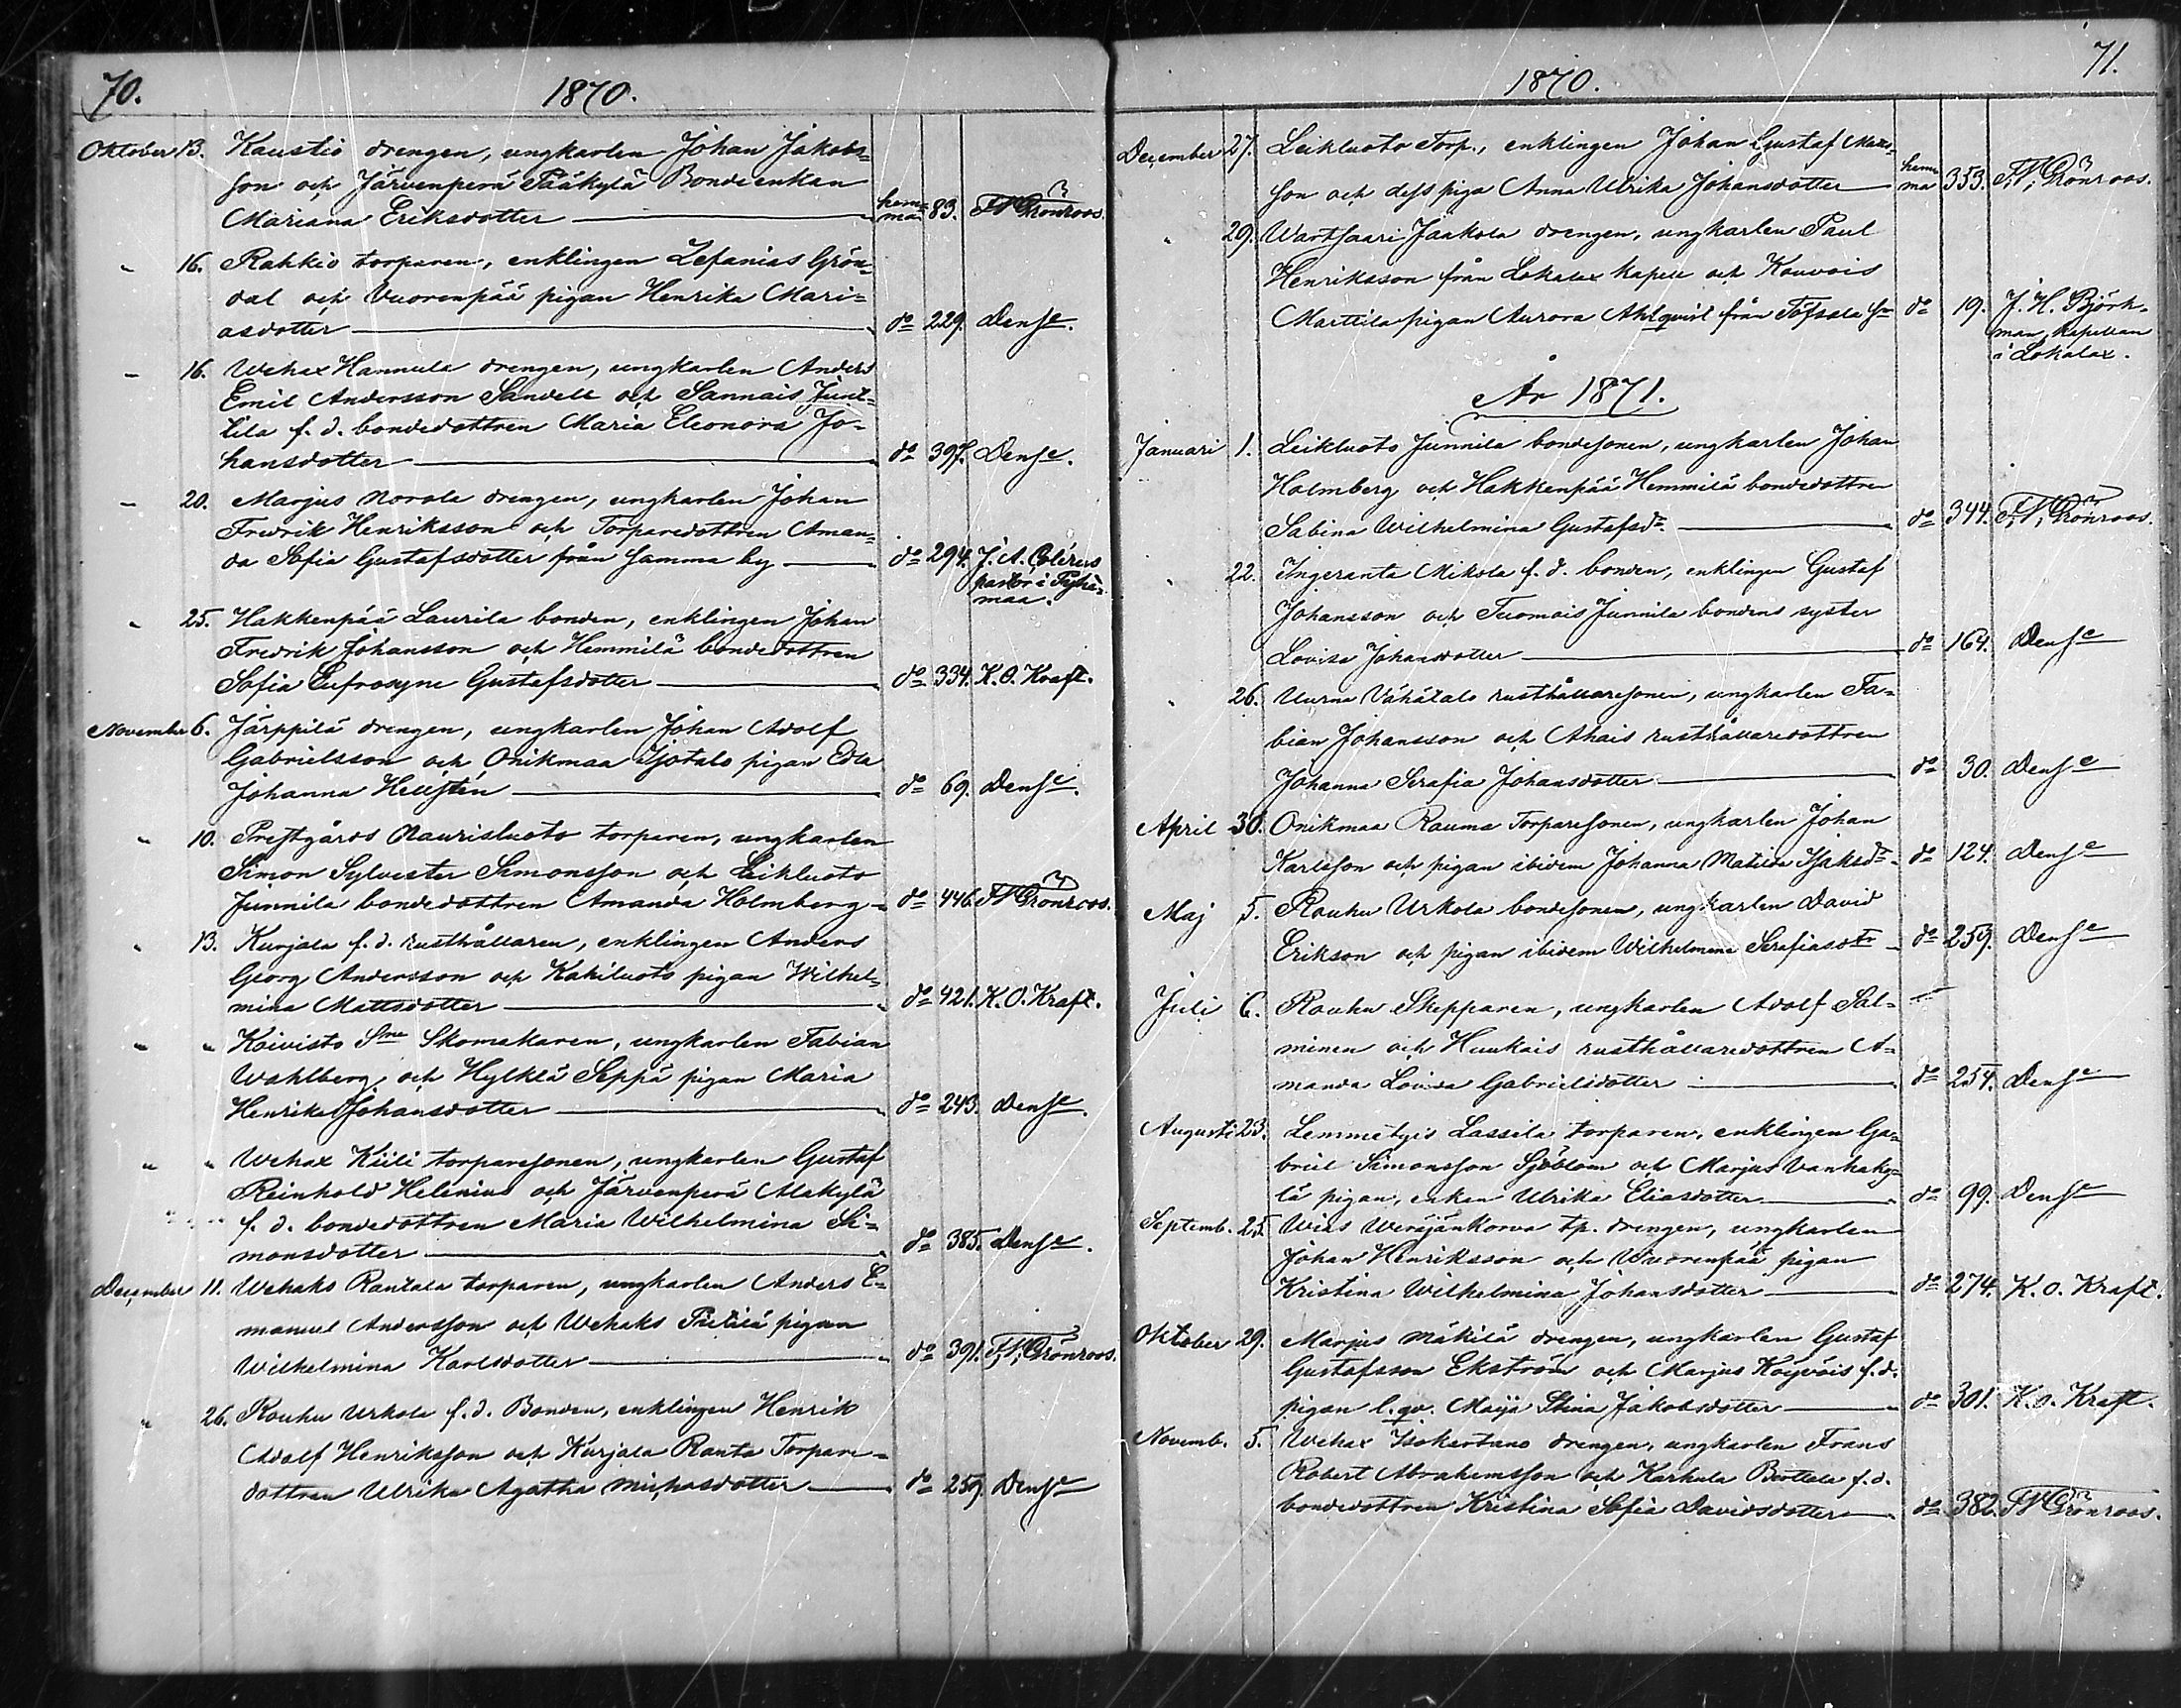 70.
1870.
Oktober 13. Kaustio drengen, ungkarlen Johan Jakobs=
son och Järvenperä Pääkylä Bondeenkan
Mariana Eriksdotter — hem=ma 83. F.W. Grönroos.
" 16. Rakkio torparen, enklingen Zefanias Grön=
dal och Vuorenpää pigan Henrika Mari=
asdotter — do 229. Dense.
— 16. Wehax Hannula drengen, ungkarlen Anders
Emil Andersson Sandell och Sannais Junt=
tila f. d. bondedottren Maria Eleonora Jo=
hansdotter — do 397. Dense.
— 20. Marjus Norola drengen, ungkarlen Johan
Fredrik Henriksson och Torparedottren Aman=
da Sofia Gustafsdotter från samma by — do 294. J. A. Colérus
pastor i Pyhä=
maa.
" 25. Hakkenpää Laurila bonden, enklingen Johan
Fredrik Johansson och Hemmilä bondedottren
Sofia Eufrosyne Gustafsdotter — do 334. K. O. Kraft.
November 6. Järppilä drengen, ungkarlen Johan Adolf
Gabrielsson och Onikmaa Isotalo pigan Edla
Johanna Hellstén — do 69. Dense.
" 10. Prestgårds Naurisluoto torparen, ungkarlen
Simon Sylvester Simonsson och Leikluoto
Junnila bondedottren Amanda Holmberg — do 446. F.W. Grönroos.
" 13. Kurjala f. d. rusthållaren, enklingen Anders
Georg Andersson och Kahiluoto pigan Wilhel=
mina Mattsdotter — do 421. K. O. Kraft.
" " Koivisto Sne Skomakaren, ungkarlen Fabian
Wahlberg och Hylklä Seppä pigan Maria
Henrika Johansdotter — do 243. Dense.
" " Wehax Kiili torparesonen, ungkarlen Gustaf
Reinhold Helenius och Järvenperä Alakylä
f. d. bondedottren Maria Wilhelmina Si=
monsdotter — do 385. Dense.
December 11. Wehaks Rantala torparen, ungkarlen Anders E=
manuel Andersson och Wehaks Pietilä pigan
Wilhelmina Karlsdotter — do 391. F.W. Grönroos.
" 26. Rouhu Urkola f. d. Bonden, enklingen Henrik
Adolf Henriksson och Kurjala Ranta Torpare=
dottren Ulrika Agatha Michelsdotter — do 259. Dense
1870.
71.
December 27. Leikluoto Torp., enklingen Johan Gustaf Mats=
son och dess piga Anna Ulrika Johansdotter — hem=ma 353. F.W. Grönroos.
" 29. Wartsaari Jaakola drengen, ungkarlen Paul
Henriksson från Lokalax kapell och Kouvois
Marttila pigan Aurora Ahlqvist från Töfsala sn do 19. J. H. Björk=
man, kapellan
i Lokalax.
År 1871.
Januari 1. Leikluoto Junnila bondesonen, ungkarlen Johan
Holmberg och Hakkenpää Hemmilä bondedottren
Sabina Wilhelmina Gustafsdr. — do 344. F.W. Grönroos.
" 22. Ingeranta Mikola f. d. bonden, enklingen Gustaf
Johansson och Tuomois Junnila bondens syster
Lovisa Johansdotter — do 164. Dense
" 26. Uurna Vähätalo rusthållaresonen, ungkarlen Fa=
bian Johansson och Ahais rusthållaredottren
Johanna Serafia Johansdotter — do 30. Dense
April 30. Onikmaa Rauma Torparesonen, ungkarlen Johan
Karlsson och pigan ibidem Johanna Matilda Isaksdr — do 124. Dense
Maj 5. Rouhu Urkola bondesonen, ungkarlen David
Erikson och pigan ibidem Wilhelmina Serafiasdtr — do 259. Dense
Juli 6. Rouhu Skepparen, ungkarlen Adolf Sal=
minen och Huukais rusthållaredottren A=
manda Lovisa Gabrielsdotter — do 254. Dense
Augusti 23. Lemmetyis Lassila torparen, enklingen Ga=
briel Simonsson Sjöblom och Marjus Vanhaky=
lä pigan, enkan Ulrika Eliasdotter — do 99. Dense
Septemb. 25. Wias Wersjänkorva tp. drengen, ungkarlen
Johan Henriksson och Wuorenpää pigan
Kristina Wilhelmina Johansdotter — do 274. K. O. Kraft.
Oktober 29. Marjus Mäkilä drengen, ungkarlen Gustaf
Gustafsson Ekström och Marjus Köyvöis f. d.
pigan l. qv. Maija Stina Jakobsdotter — do 301. K. O. Kraft.
Novemb. 5. Wehax Isokertano drengen, ungkarlen Frans
Robert Abrahamsson och Karhula Perttala f. d.
bondedottren Kristina Sofia Davidsdotter — do 382. F.W. Grönroos.